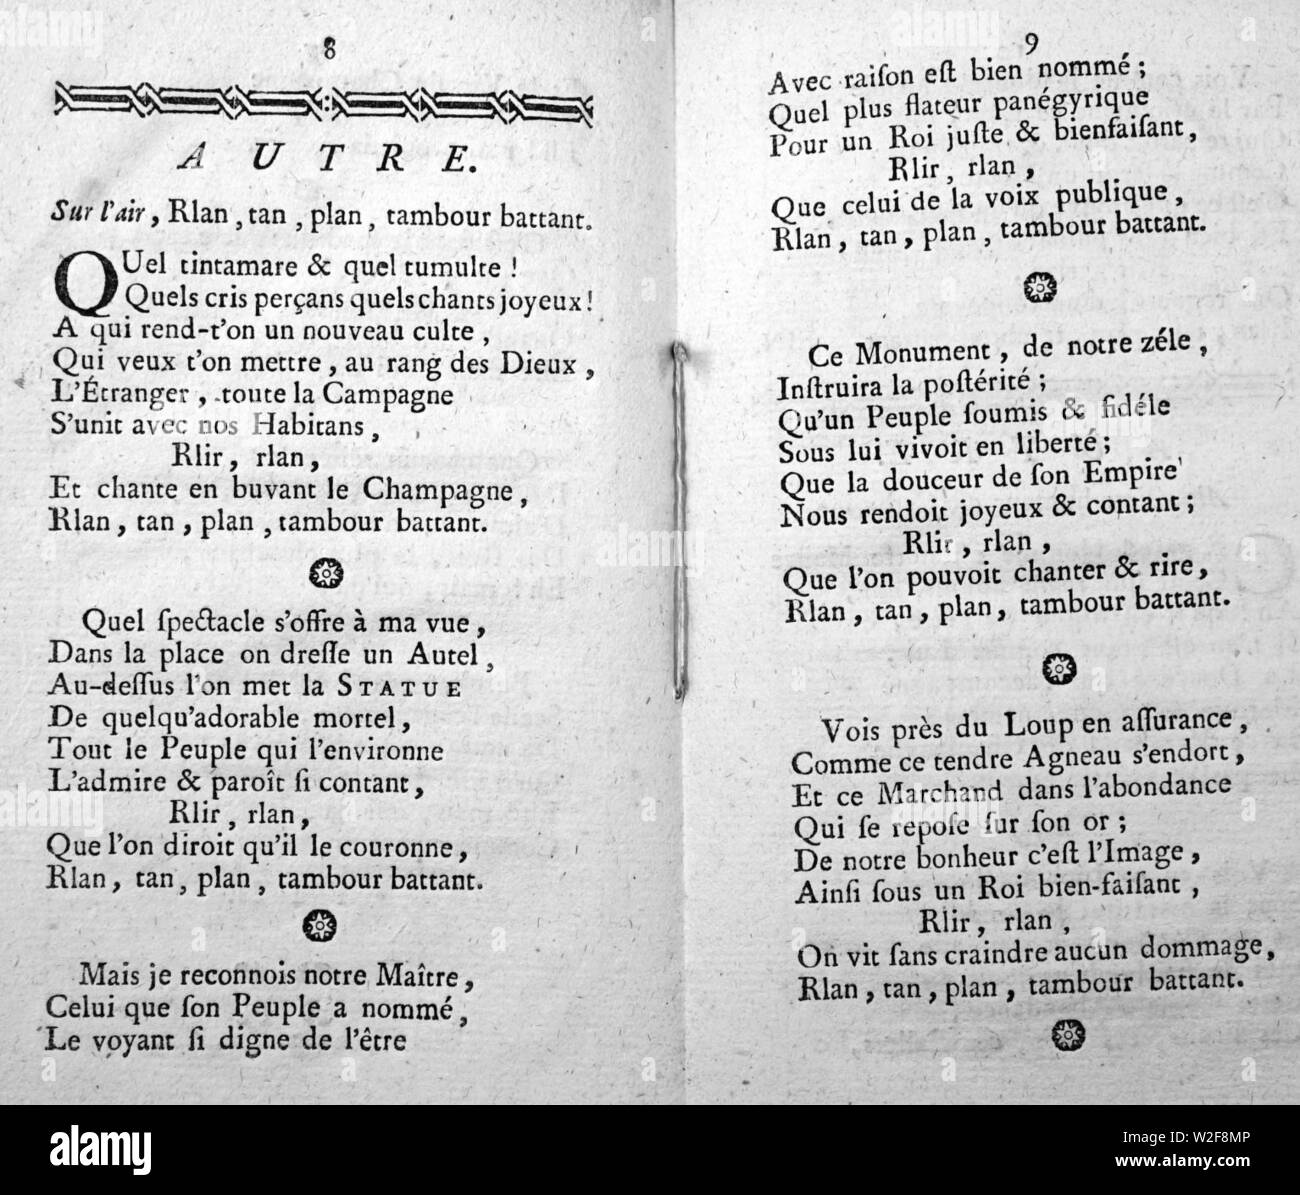 8
AUTRE.
Sur l'air, Rlan, tan, plan, tambour battant.
QUel tintamare & quel tumulte !
Quels cris perçans quels chants joyeux !
A qui rend-t'on un nouveau culte,
Qui veux t'on mettre, au rang des Dieux,
L'Étranger, toute la Campagne
S'unit avec nos Habitans,
Rlir, rlan,
Et chante en buvant le Champagne,
Rlan, tan, plan, tambour battant.
Quel ſpectacle s'offre à ma vue,
Dans la place on dreſſe un Autel,
Au-deſſus l'on met la STATUE
De quelqu'adorable mortel,
Tout le Peuple qui l'environne
L'admire & paroît ſi contant,
Rlir, rlan,
Que l'on diroit qu'il le couronne,
Rlan, tan, plan, tambour battant.
Mais je reconnois notre Maître,
Celui que ſon Peuple a nommé,
Le voyant ſi digne de l'être
9
Avec raiſon eſt bien nommé ;
Quel plus flateur panégyrique
Pour un Roi juſte & bienfaiſant,
Rlir, rlan,
Que celui de la voix publique,
Rlan, tan, plan, tambour battant.
Ce Monument, de notre zéle,
Inſtruira la poſtérité ;
Qu'un Peuple ſoumis & fidéle
Sous lui vivoit en liberté ;
Que la douceur de ſon Empire
Nous rendoit joyeux & contant ;
Rlir, rlan,
Que l'on pouvoit chanter & rire,
Rlan, tan, plan, tambour battant.
Vois près du Loup en aſſurance,
Comme ce tendre Agneau s'endort,
Et ce Marchand dans l'abondance
Qui ſe repoſe ſur ſon or ;
De notre bonheur c'eſt l'Image,
Ainſi ſous un Roi bien-faiſant,
Rlir, rlan,
On vit ſans craindre aucun dommage,
Rlan, tan, plan, tambour battant.
alamy
Image ID: W2F8MP
www.alamy.com